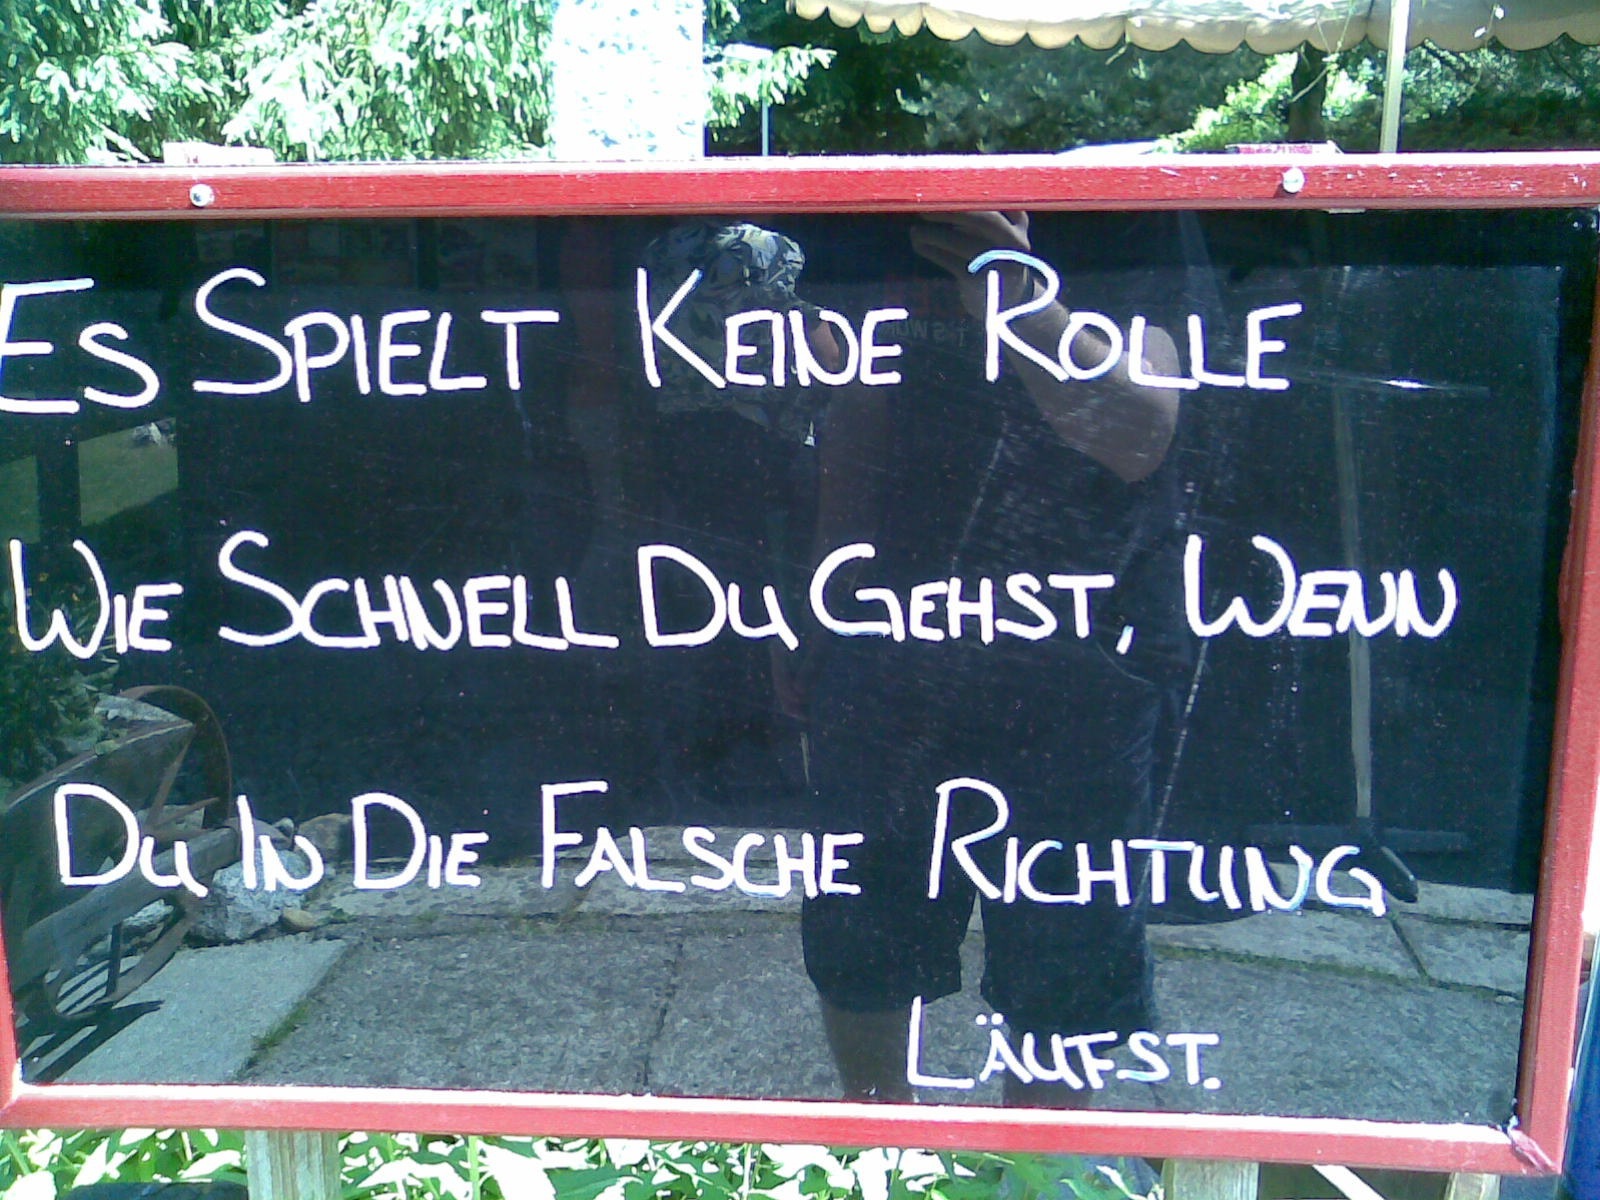 Es Spielt Keine Rolle
Wie Schnell Du Gehst, Wenn
Du In Die Falsche Richtung
Läufst.